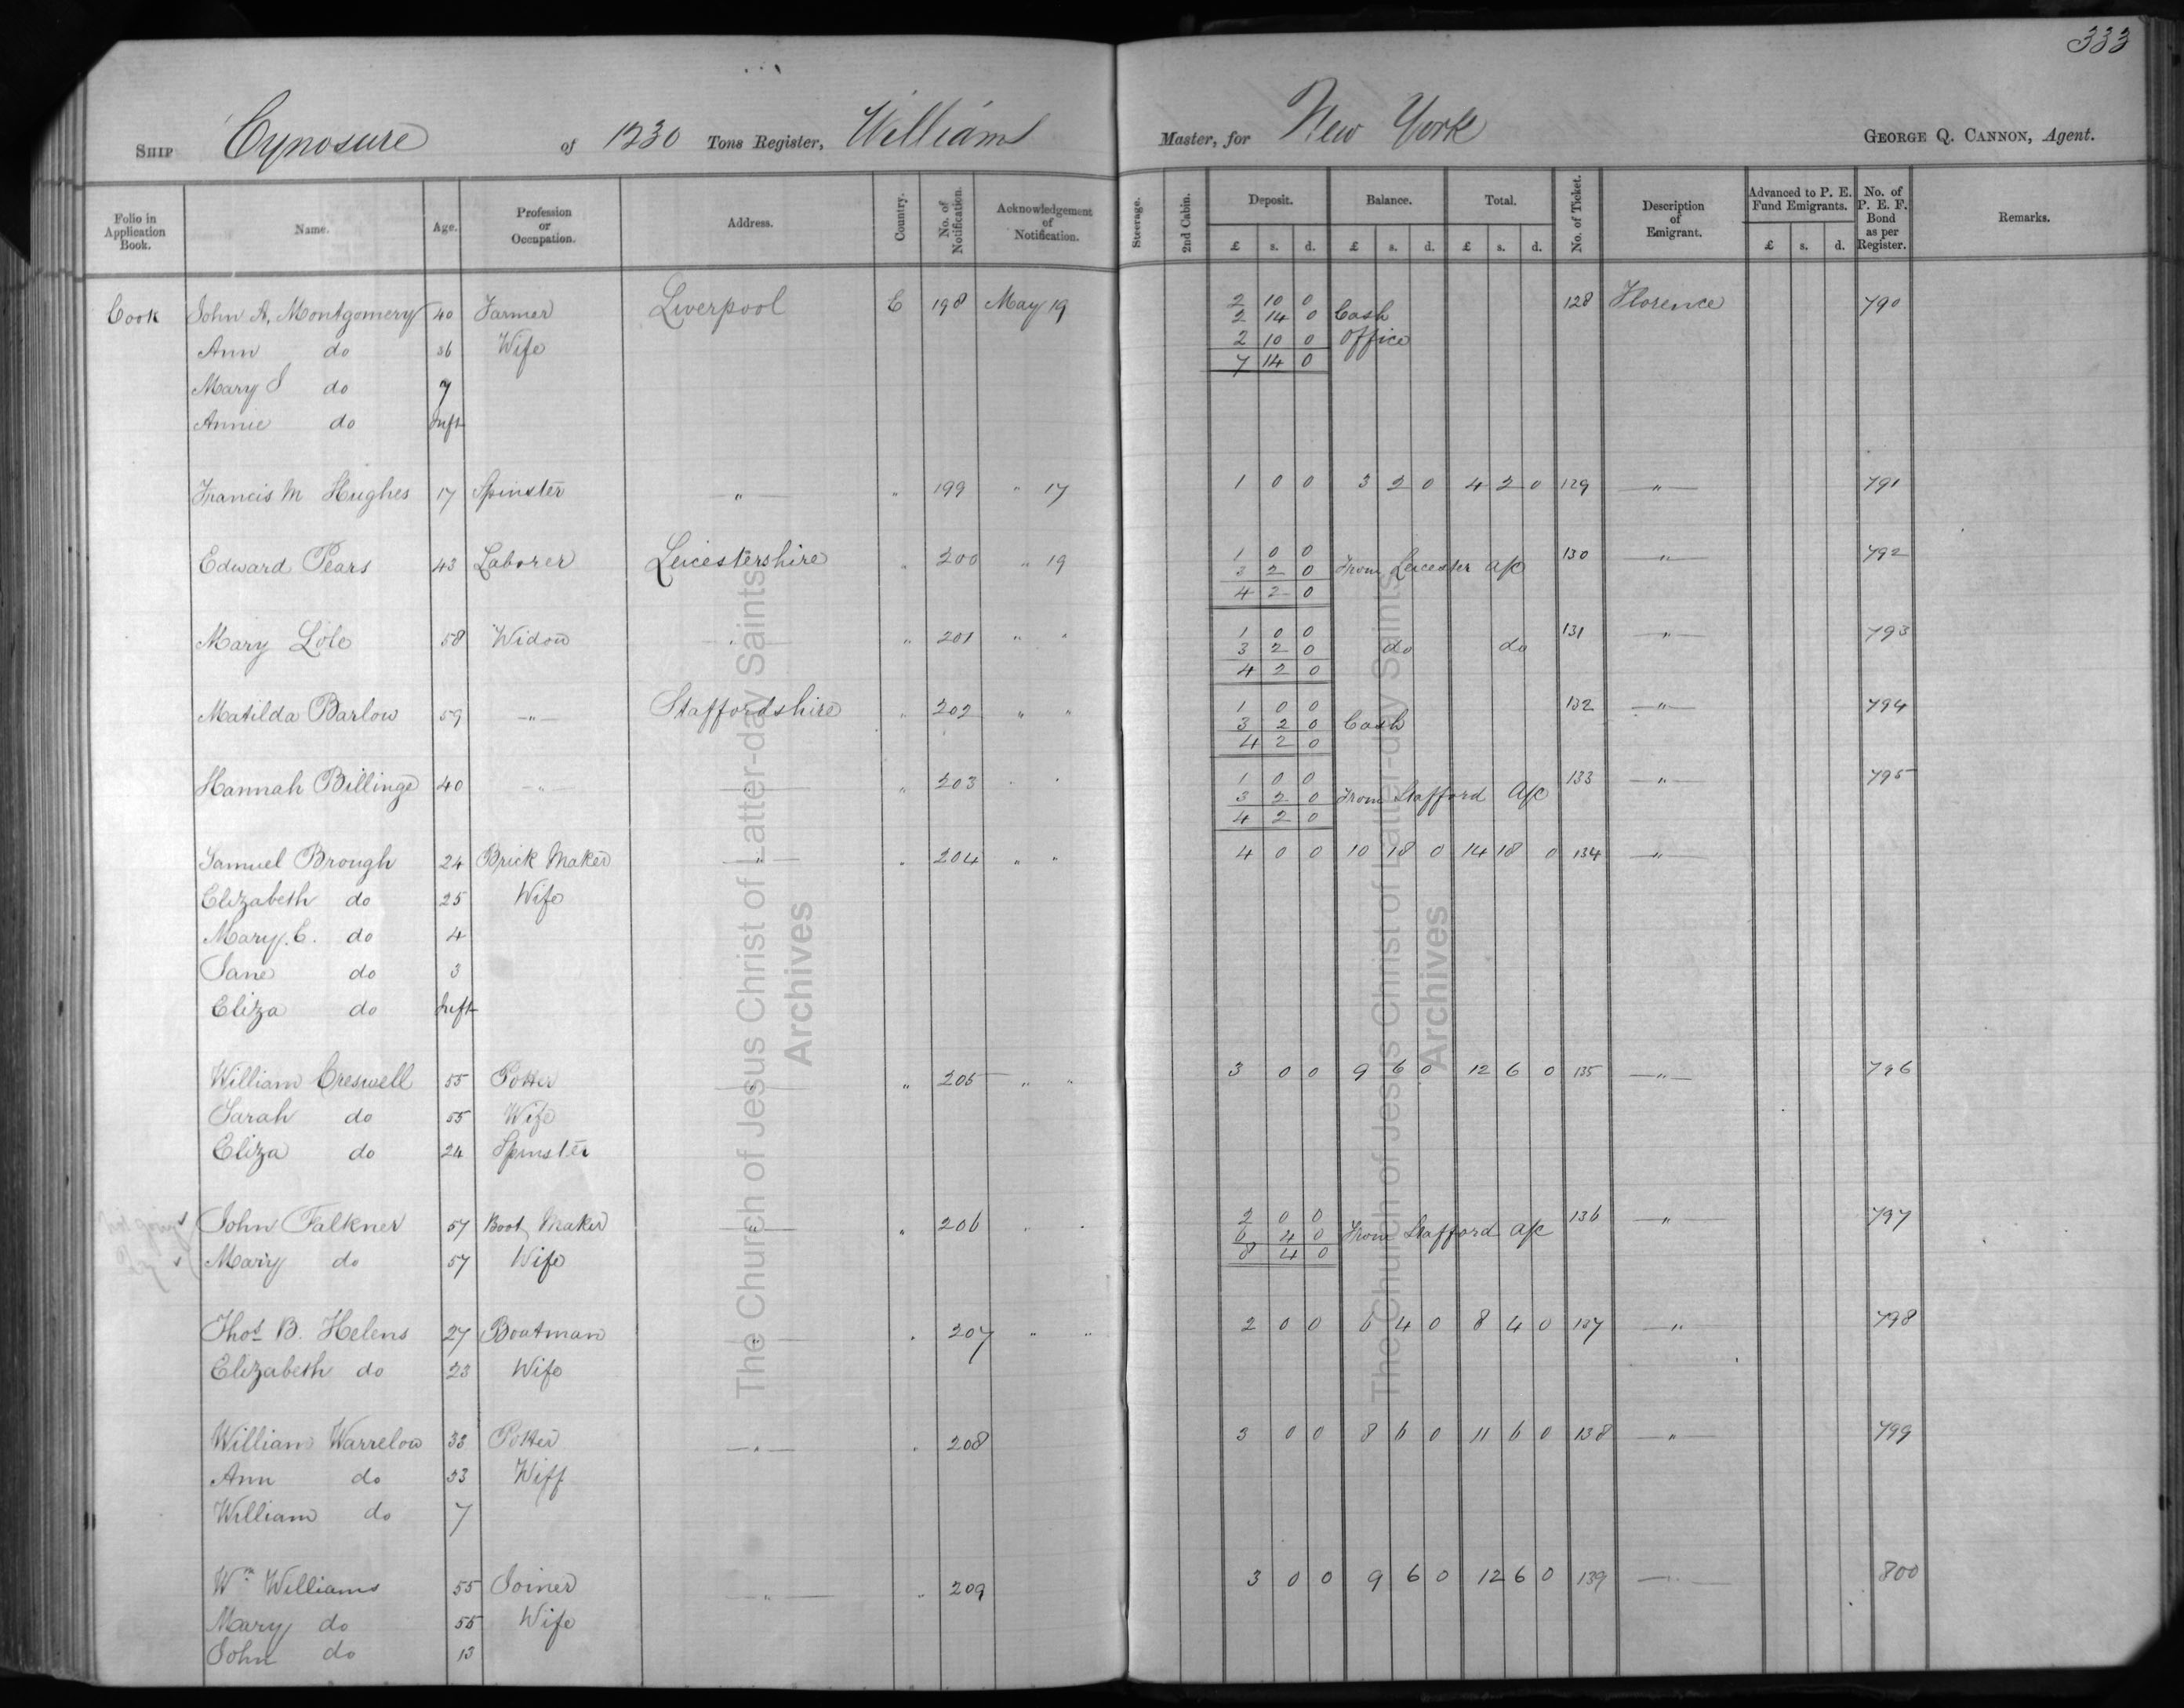 333
SHIP Cynosure of 1230 Tons Register, Williams Master, for New York GEORGE Q. CANNON, Agent.
Folio in Application Book. Name. Age. Profession or Occupation. Address. Country. No. of Notification. Acknowledgement of Notification. Steerage. 2nd Cabin. Deposit. Balance. Total. No. of Ticket. Description of Emigrant. Advanced to P. E. Fund Emigrants. No. of P. E. F. Bond as per Register. Remarks.
£ s. d. £ s. d. £ s. d. £ s. d.
Cook John A. Montgomery 40 Farmer Liverpool E 198 May 19 2 10 0 128 Florence 790
2 14 0 Cash
Ann do 36 Wife 2 10 0 Office
7 14 0
Mary S do 7
Annie do Inft
Francis M Hughes 17 Spinster " " 199 " 17 1 0 0 3 2 0 4 2 0 129 " 791
Edward Pears 43 Laborer Leicestershire " 200 " 19 1 0 0 130 " 792
3 2 0 From Leicester A/c
4 2 0
Mary Lole 58 Widow " " 201 " " 1 0 0 131 " 793
3 2 0 do do
4 2 0
Matilda Barlow 59 " Staffordshire " 202 " " 1 0 0 132 " 794
3 2 0 Cash
4 2 0
Hannah Billinge 40 " " " 203 " " 1 0 0 133 " 795
3 2 0 From Stafford A/c
4 2 0
Samuel Brough 24 Brick Maker " " 204 " " 4 0 0 10 18 0 14 18 0 134 "
Elizabeth do 25 Wife
Mary E. do 4
Jane do 3
Eliza do Inft
William Creswell 55 Potter " " 205 " " 3 0 0 9 6 0 12 6 0 135 " 796
Sarah do 55 Wife
Eliza do 24 Spinster
John Falkner 57 Boot Maker " " 206 " " 2 0 0 136 " 797
6 4 0 From Stafford A/c
Mary do 57 Wife 8 4 0
Thos B. Helens 27 Boatman " " 207 " " 2 0 0 6 4 0 8 4 0 137 " 798
Elizabeth do 23 Wife
William Warrelow 33 Potter " " 208 3 0 0 8 6 0 11 6 0 138 " 799
Ann do 33 Wiff
William do 7
Wm Williams 55 Joiner " " 209 3 0 0 9 6 0 12 6 0 139 " 800
Mary do 55 Wife
John do 13
The Church of Jesus Christ of Latter-day Saints
Archives
The Church of Jesus Christ of Latter-day Saints
Archives